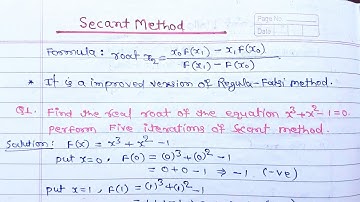 Secant Method
Page No.
Date
Formula: root x₂ = x₀F(x₁) - x₁F(x₀) / F(x₁) - F(x₀)
* It is a improved version of Regula-Falsi method.
Q1. Find the real root of the equation x³+x²-1=0.
perform Five iterations of Secant method.
Solution: F(x) = x³ + x² - 1
put x=0, F(0) = (0)³+(0)²-1
= 0+0-1 ⇒ -1. (-ve)
put x=1, F(1) = (1)³+(1)²-1